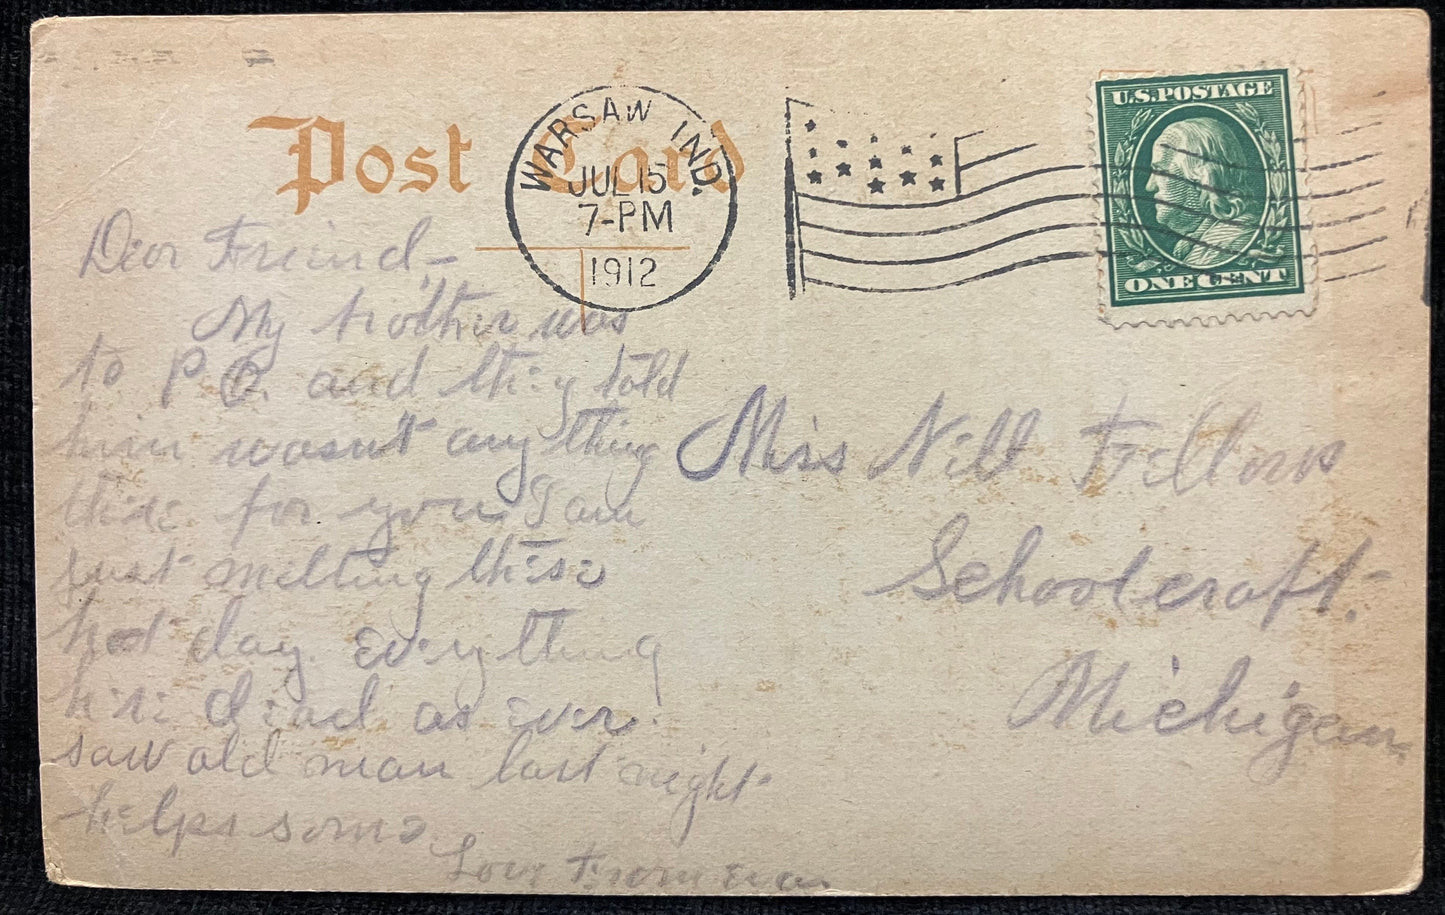 Post Card
WARSAW IND.
JUL 15
7-PM
1912
U.S. POSTAGE
ONE CENT
Dear Friend -
My brother was
to P.O. and they told
him wasn't any thing
there for you I am
just melting these
hot day. everything
here dead as ever.
saw old man last night
helps some.
Love From
Miss Nell Fellows
Schoolcraft.
Michigan.